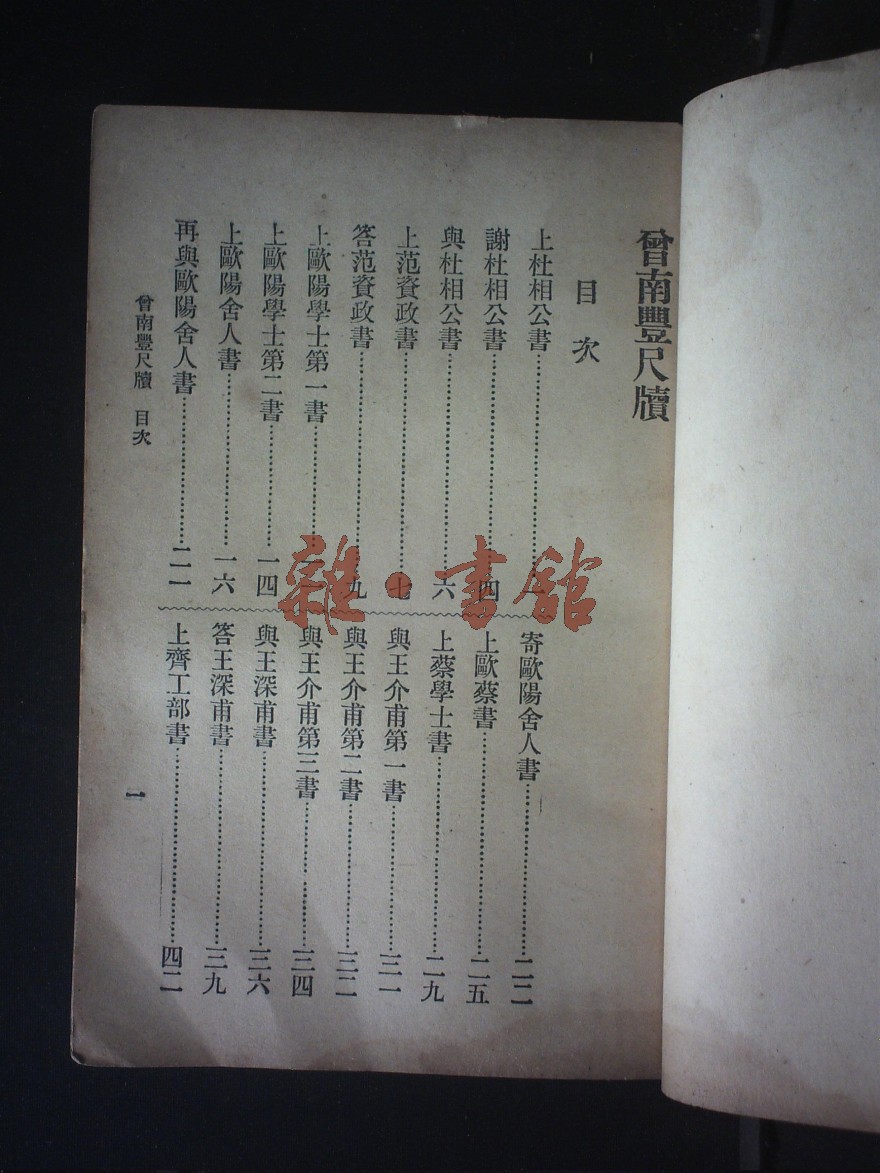 曾南豐尺牘
目次
上杜相公書
謝杜相公書 四
與杜相公書 六
上范資政書 七
答范資政書 九
上歐陽學士第一書
上歐陽學士第二書 一四
上歐陽舍人書 一六
再與歐陽舍人書 二一
寄歐陽舍人書 二二
上歐蔡書 二五
上蔡學士書 二九
與王介甫第一書 三一
與王介甫第二書 三二
與王介甫第三書 三四
與王深甫書 三六
答王深甫書 三九
上齊工部書 四二
曾南豐尺牘 目次
一
雜·書館